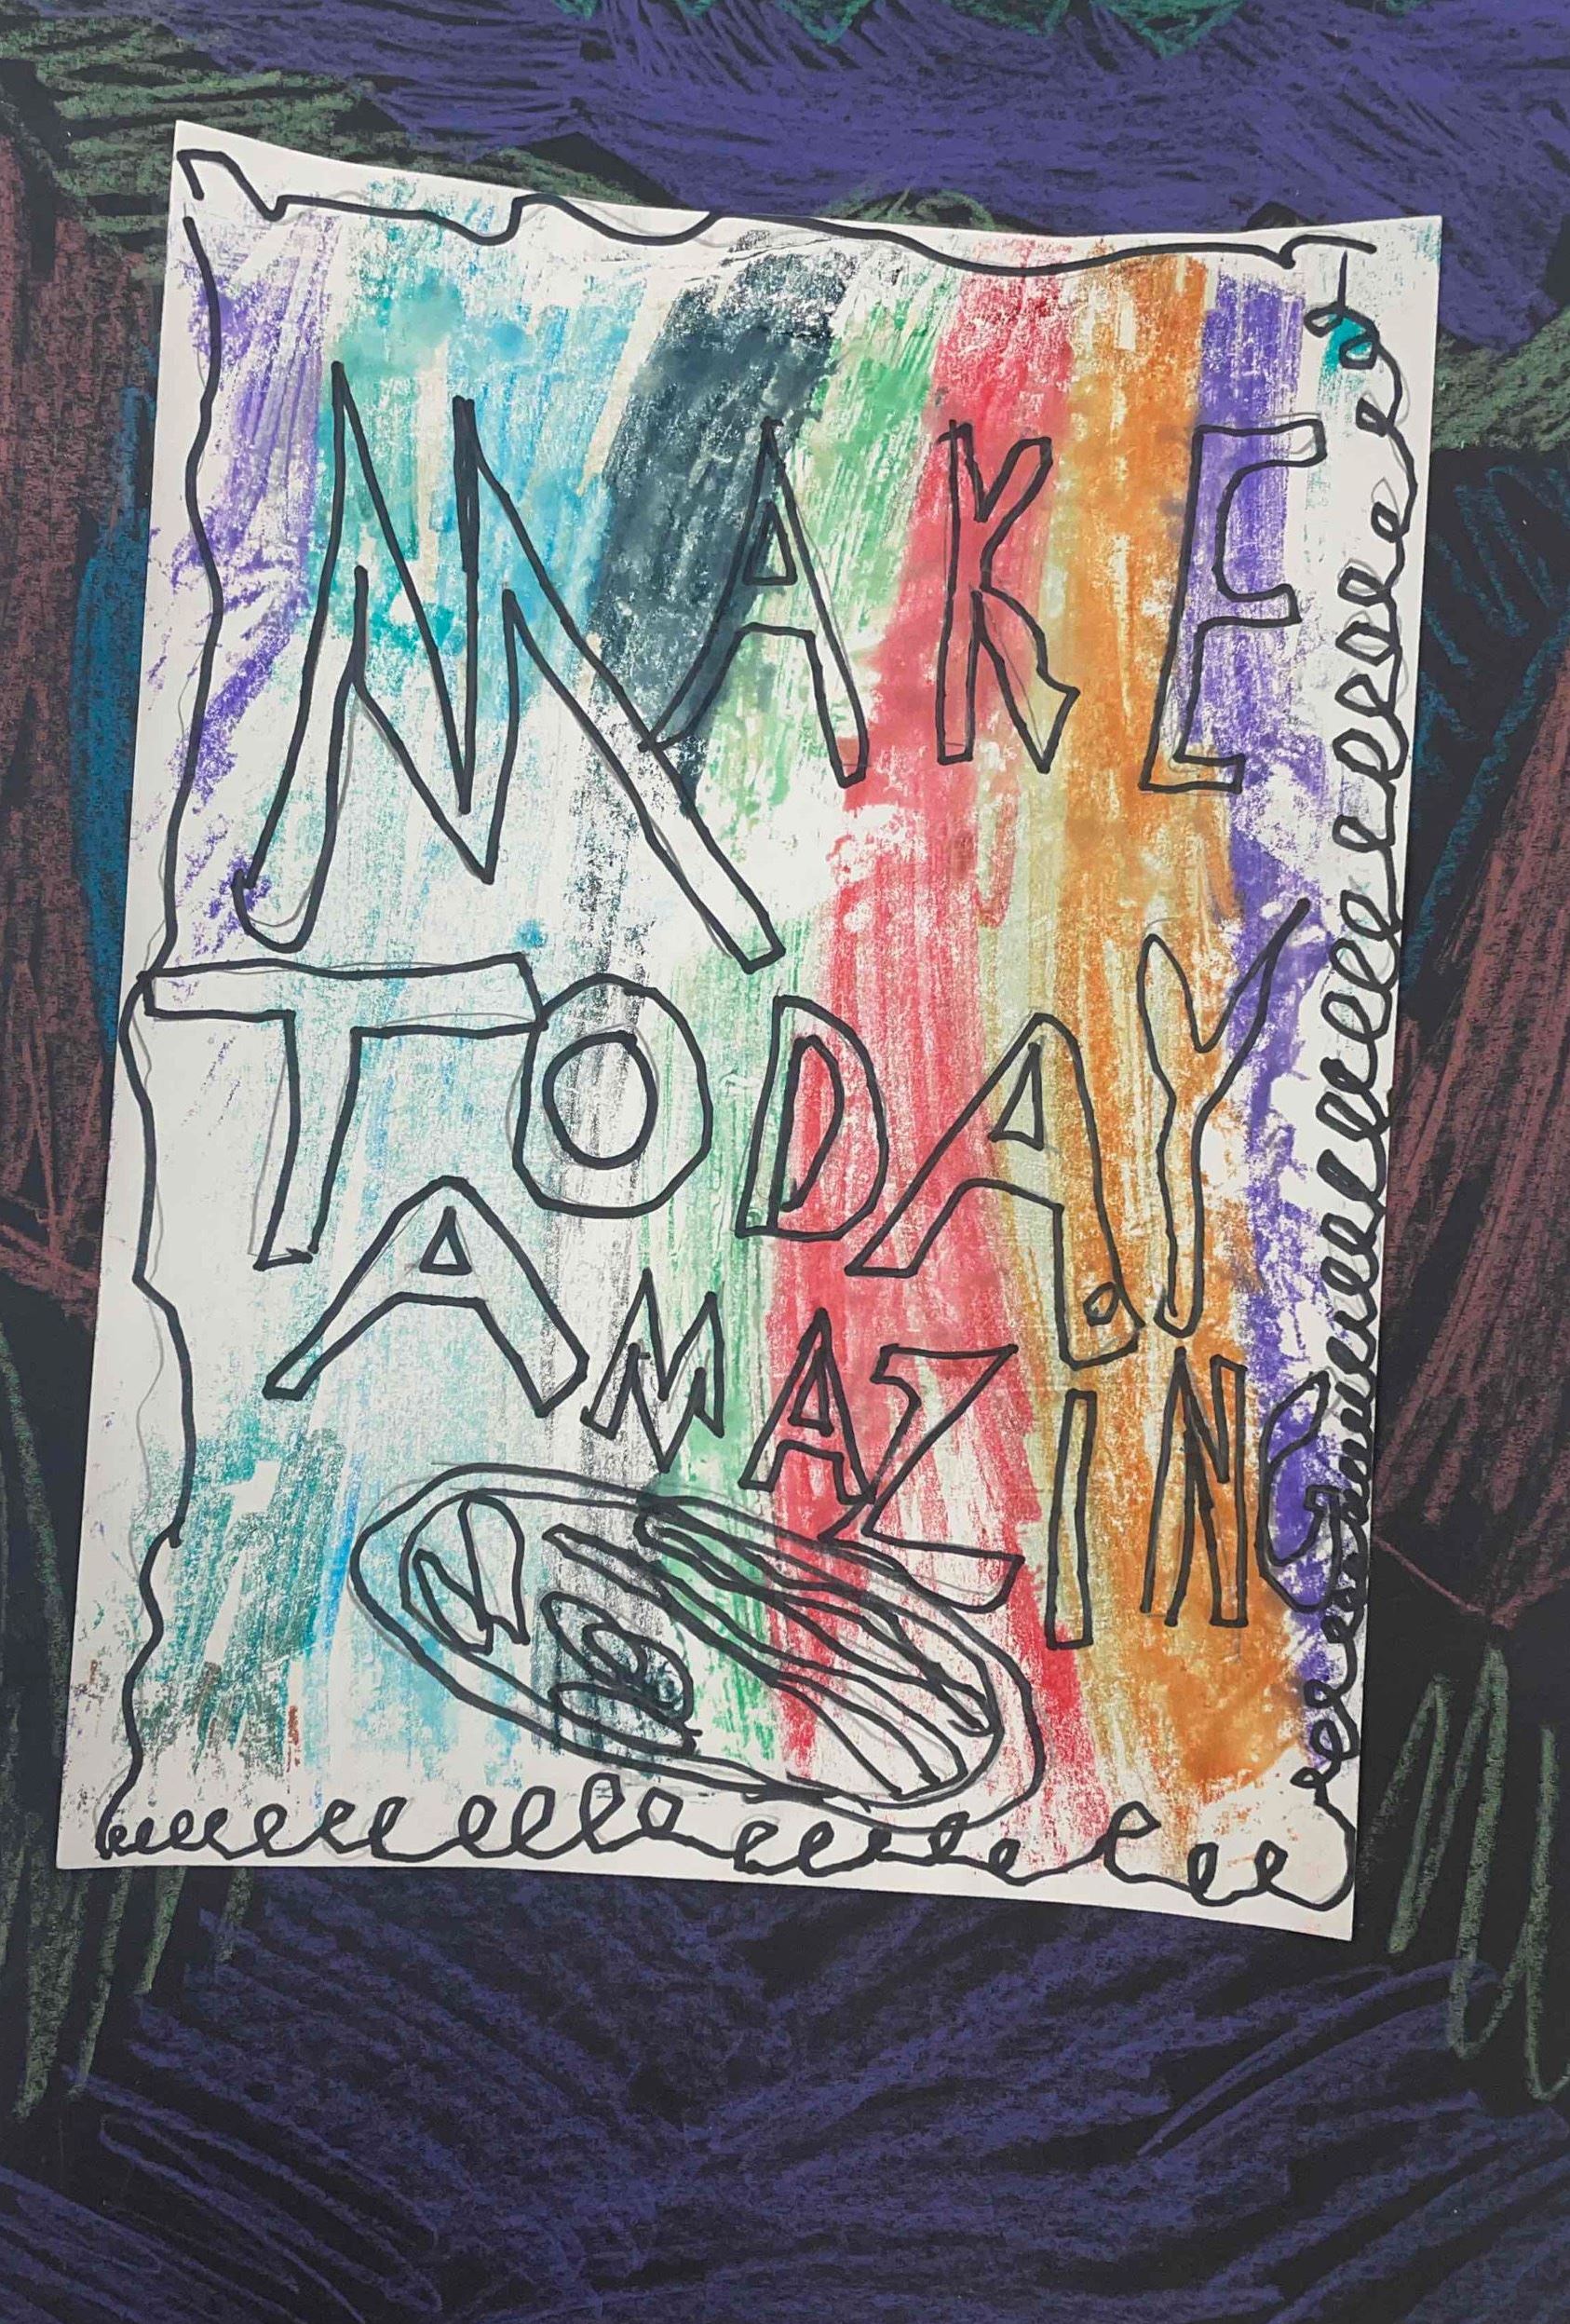 MAKE
TODAY
AMAZING